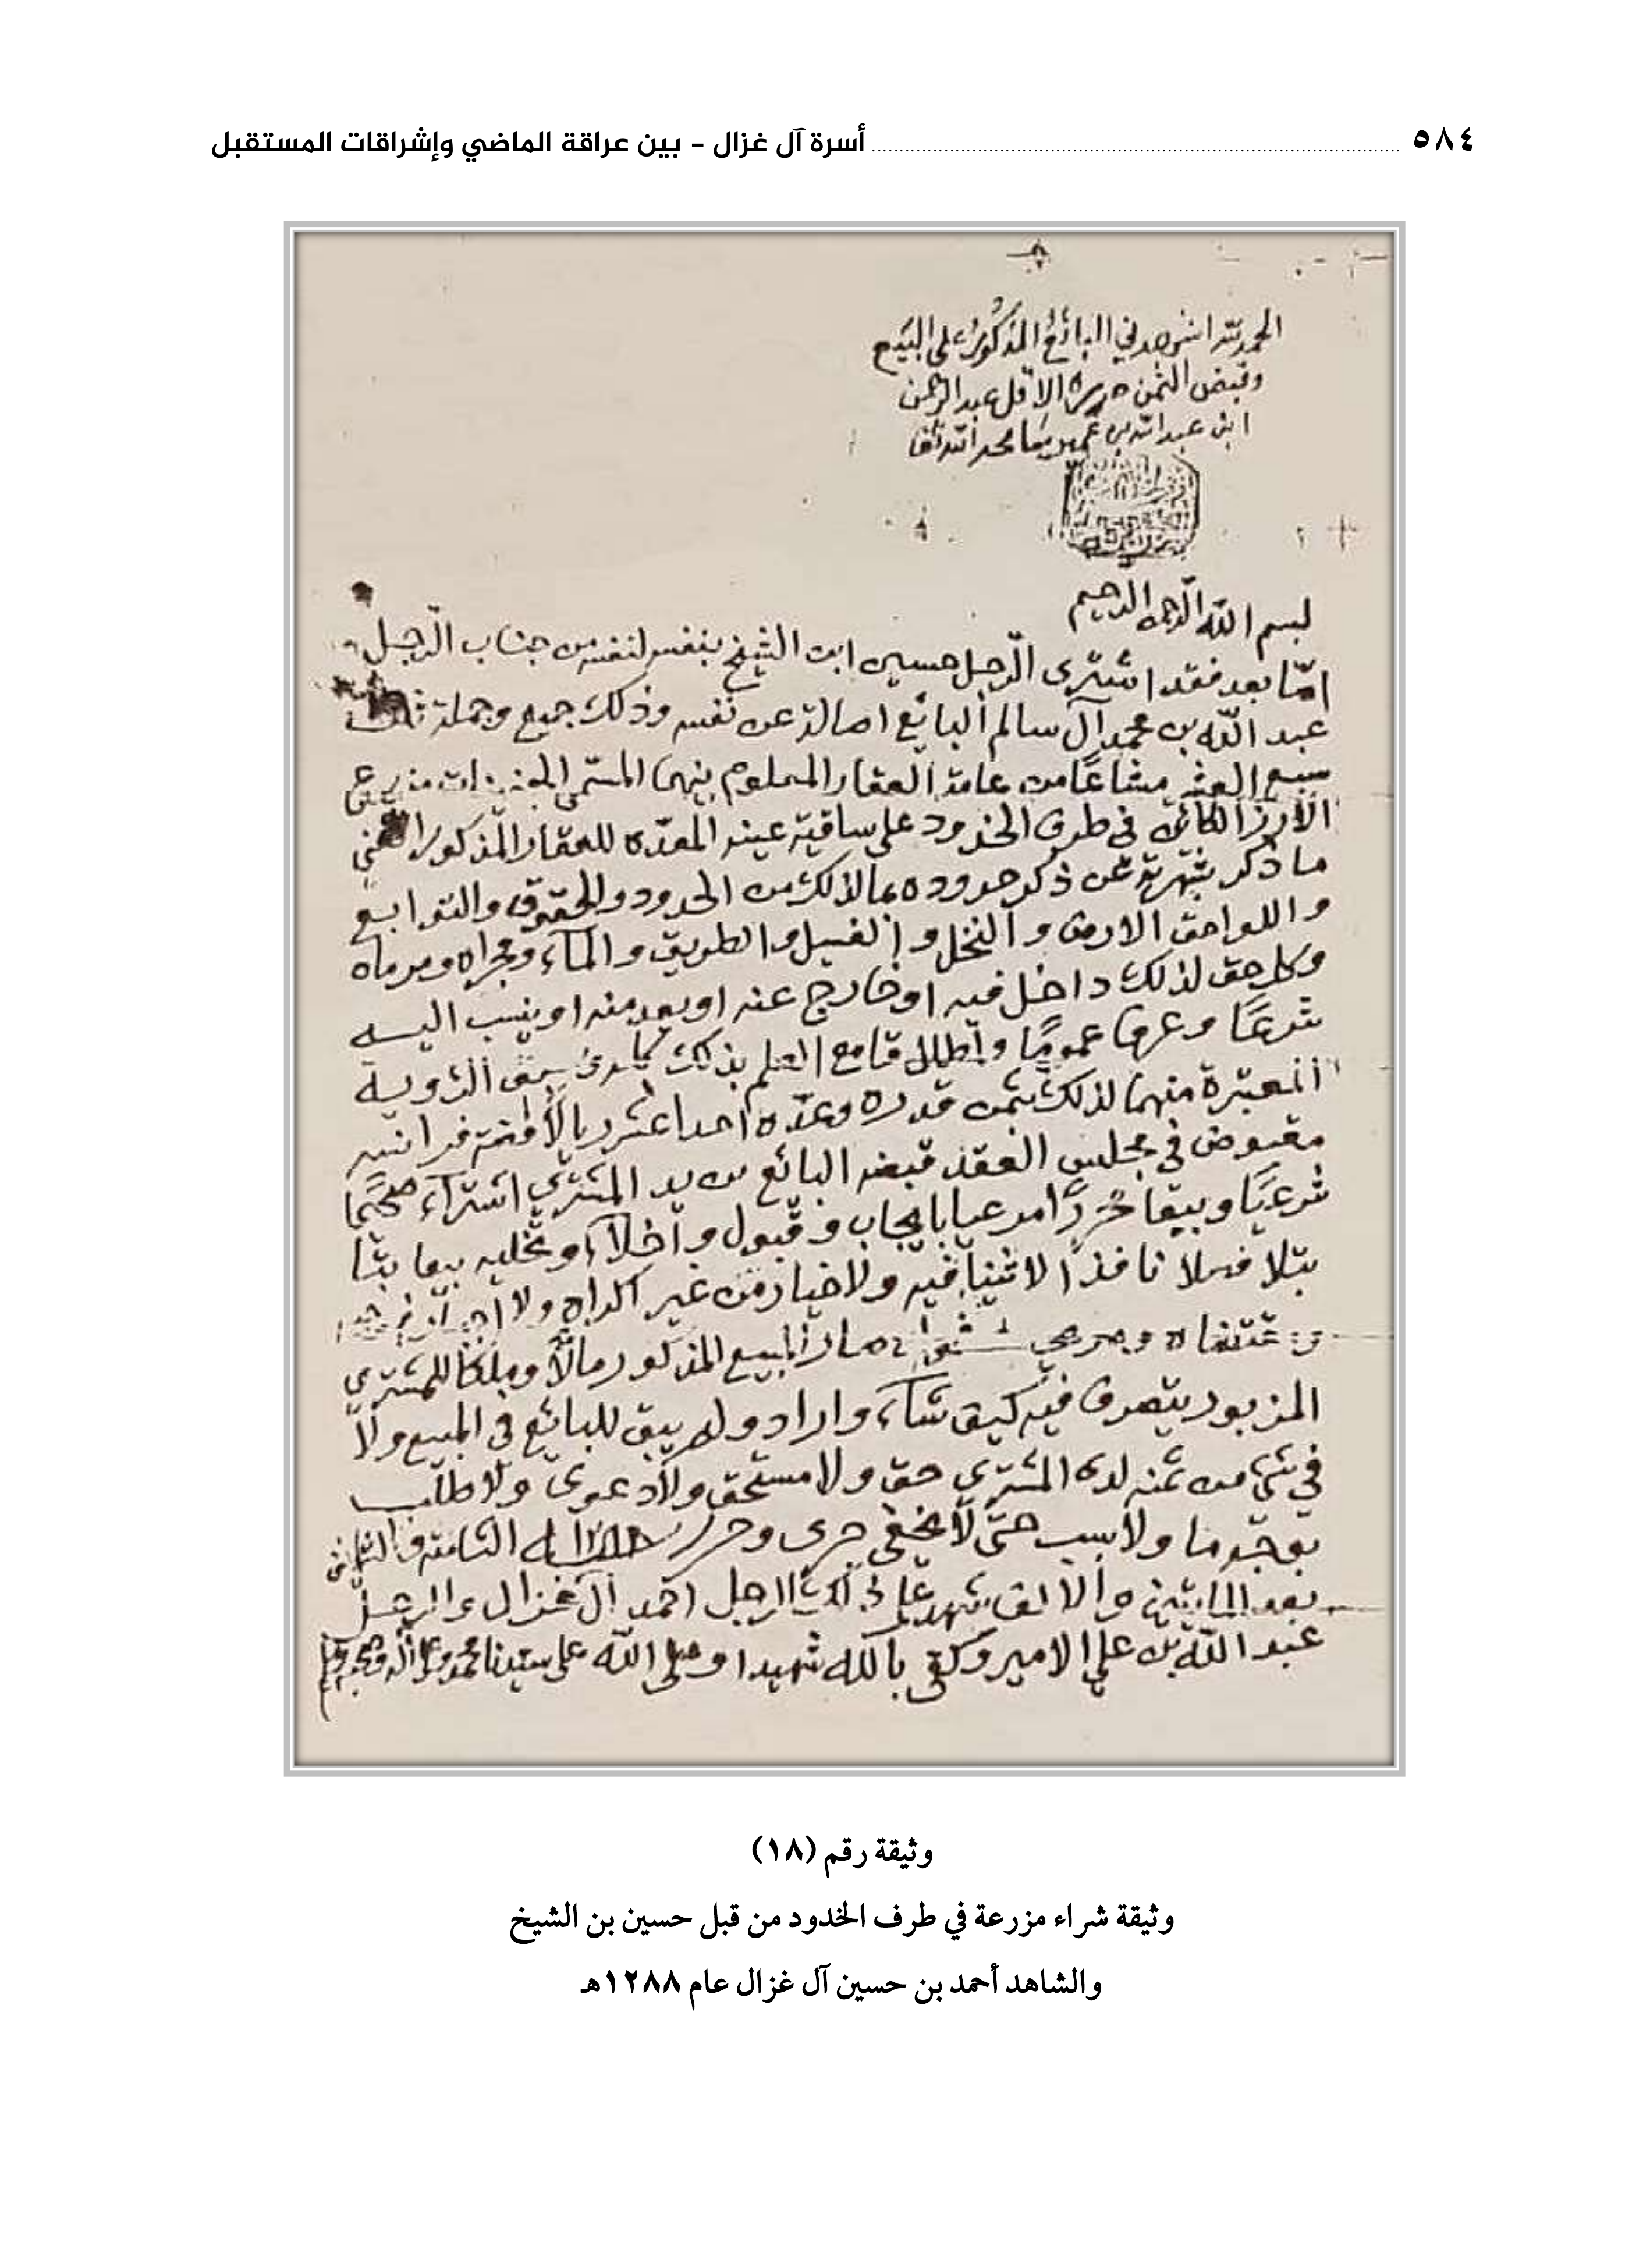 ٥٨٤ أسرة آل غزال - بين عراقة الماضي وإشراقات المستقبل
الحمد لله اشهدني البائع المذكور على البيع
وقبض الثمن حرره الاقل عبد الرحمن
ابن عبد الله بن
بسم الله الرحمن الرحيم
امّا بعد فقد اشترى الرجل حسين ابن الشيخ بنفسه لنفسه من جناب الرجل
عبد الله بن محمد آل سالم البائع اصالة عن نفسه وذلك جميع وجملة ثلث
سبع العشر مشاعًا من عامة العقار المعلوم بينهما المسمى
الارز الكائن في طرف الخدود على ساقية عينه المعدّه للعقار المذكور الغني
ما ذكر بشهرته عن ذكر حدوده بما لذلك من الحدود والحقوق والتوابع
واللواحق الارض والنخل والفسيل والطريق والماء ومجراه ومرماه
وكل حق لذلك داخل فيه او خارج عنه او يعد منه او ينسب اليه
شرعًا وعرفا عمومًا واطلاقا مع العلم بذلك كما يدى الرويه
المعتبرة منهما لذلك بثمن قدره وعدّه احدا عشر ريالاً فضة فرانسه
مقبوض في مجلس العقد قبضه البائع من يد المشتري اشتراء صحيحًا
شرعيًا وبيعا محررًا مرعيا بايجاب وقبول واخلاء وتخليه بيعا بتّا
بتلا فصلا نافذًا لا ثنيا فيه ولا خيار من غير اكراه ولا اجبار
صار المبيع المذكور مالاً وملكا للمشتري
المزبور يتصرف فيه كيف شاء واراد ولم يبق للبائع في المبيع ولا
في شيء من ثمنه لدى المشتري حق ولا مستحق ولا دعوى ولا طلب
بوجه ما ولا سبب حتى لا يخفى جرى وحرر الثامنه والثمانين
بعد المايتين والالف شهد على ذلك الرجل احمد آل غزال والرجل
عبد الله بن علي الامير وكفى بالله شهيدا وصلى الله على سيدنا محمد وعلى اله وصحبه وسلم
وثيقة رقم (١٨)
وثيقة شراء مزرعة في طرف الخدود من قبل حسين بن الشيخ
والشاهد أحمد بن حسين آل غزال عام ١٢٨٨هـ